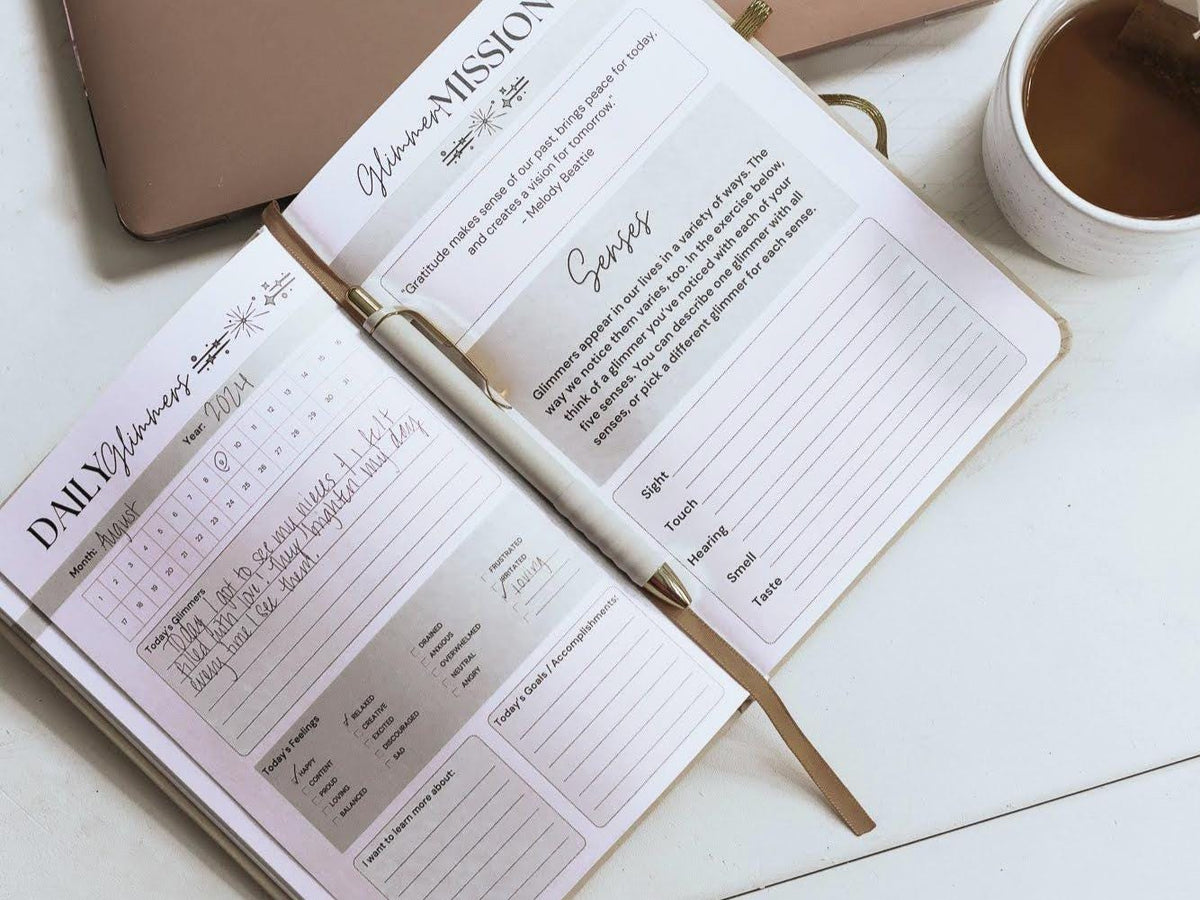 DAILY Glimmers
Month: August Year: 2024
1 2 3 4 5 6 7 8 9 10 11 12 13 14 15 16
17 18 19 20 21 22 23 24 25 26 27 28 29 30 31
Today's Glimmers
Today I got to see my nieces & felt
filled with love. They brighten my day
every time I see them.
Today's Feelings
HAPPY
CONTENT
PROUD
LOVING
BALANCED
RELAXED
CREATIVE
EXCITED
DISCOURAGED
SAD
DRAINED
ANXIOUS
OVERWHELMED
NEUTRAL
ANGRY
FRUSTRATED
IRRITATED
Loving
I want to learn more about:
Today's Goals / Accomplishments:
Glimmer MISSION
"Gratitude makes sense of our past, brings peace for today,
and creates a vision for tomorrow."
- Melody Beattie
Senses
Glimmers appear in our lives in a variety of ways. The
way we notice them varies, too. In the exercise below,
think of a glimmer you've noticed with each of your
five senses. You can describe one glimmer with all
senses, or pick a different glimmer for each sense.
Sight
Touch
Hearing
Smell
Taste